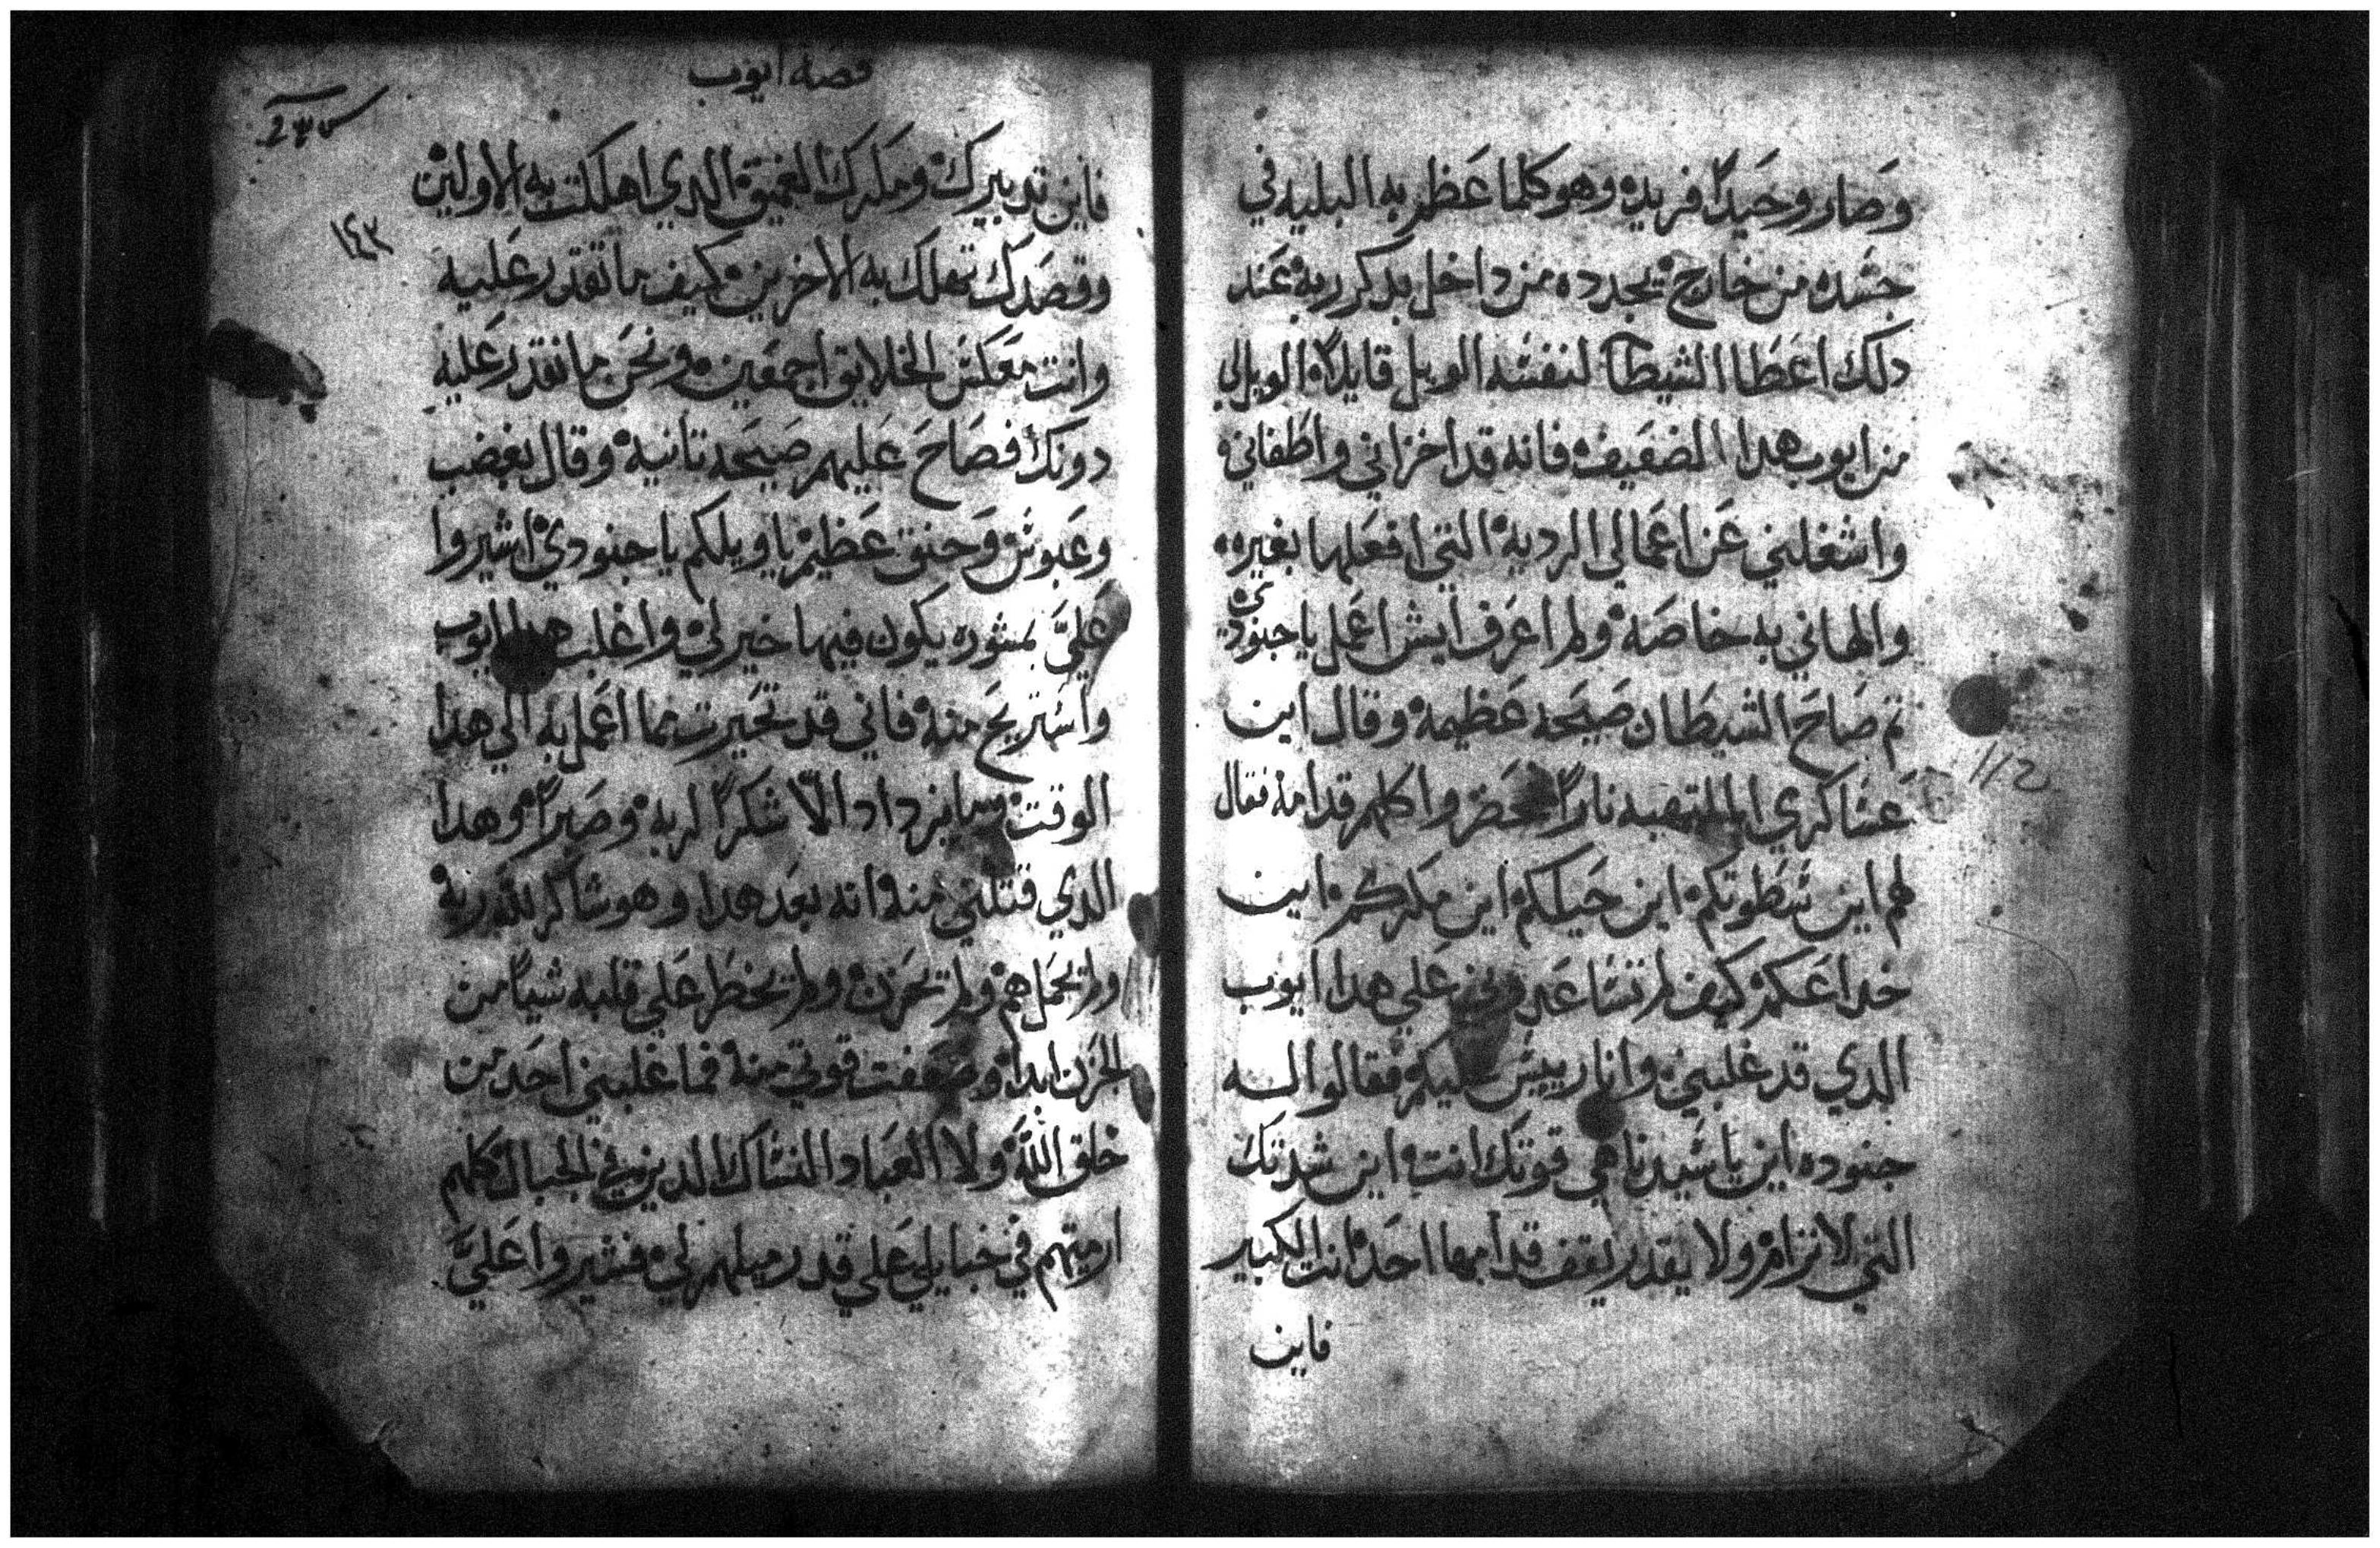 وصار وحيدًا فريده وهو كلما عظم به البليه في
جسده من خارج يجدده من داخل بدكر ربه عند
دلك اعطا الشيطان لنفسه الويل قايلاً الويل لي
من ايوب هدا الضعيف فانه قد اخزاني واطفاني
واشغلني عن اعمالي الرديه التي افعلها بغيره
والهاني به خاصه ولم اعرف ايش اعمل يا جنودي
تم صاح الشيطان صيحه عظيمه وقال اين
عساكري الملتهبه نارًا فحضروا كلهم قدامه فقال
لهم اين سطوتكم اين حيلكم اين مكركم اين
خداعكم كيف لم تساعدوني علي هدا ايوب
الدي قد غلبني وانا رييس عليكم فقالوا له
جنوده اين يا سيدنا هي قوتك انت اين شدتك
التي لا ترام ولا يقدر يقف قدامها احد انت الكبير
فاين
قصة ايوب
١٤٣
فاين تدبيرك ومكرك العميق الدي اهلكت به الاولين
وقصدك تهلك به الاخرين كيف ما تقدر عليه
وانت معكس الخلايق اجمعين ونحن ما نقدر عليه
دونك فصاح عليهم صيحه تانيه وقال بغضب
وعبوس وحنق عظيم يا ويلكم يا جنودي اشيروا
عليَّ بمشوره يكون فيها خير لي واغلب هدا ايوب
واستريح منه فاني قد تحيرت مما اعمل به الي هدا
الوقت وما يزداد الّا شكرًا لربه وصبرًا وهدا
الدي قتلني منه انه بعد هدا وهو شاكر لله ربه
ولم يحمل هم ولم يحزن ولم يخطر علي قلبه شياً من
الحزن ابدا وضعفت قوتي منه فما غلبني احد من
خلق الله ولا العباد النساك الدين في الجبال كلهم
ارميتهم في خبايلي علي قدر ميلهم لي فشيروا عليَّ